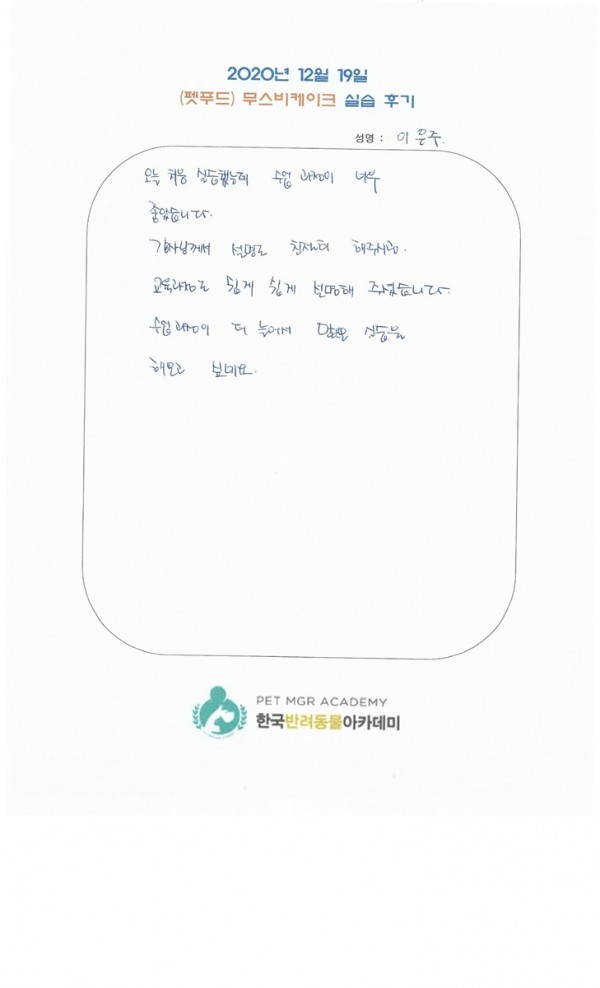 2020년 12월 19일
(펫푸드) 무스비케이크 실습 후기
성명 : 이 문주.
오늘 처음 실습했는데 수업 과정이 너무
좋았습니다.
강사님께서 설명도 친절히 해주시고.
교육과정도 쉽게 쉽게 설명해 주셨습니다.
수업 과정이 더 늘어서 실습을
해보고 보네요.
PET MGR ACADEMY
한국반려동물아카데미